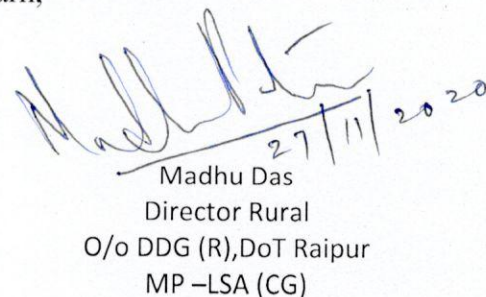 Madhu Das
27/11/2020
Madhu Das
Director Rural
O/o DDG (R),DoT Raipur
MP –LSA (CG)